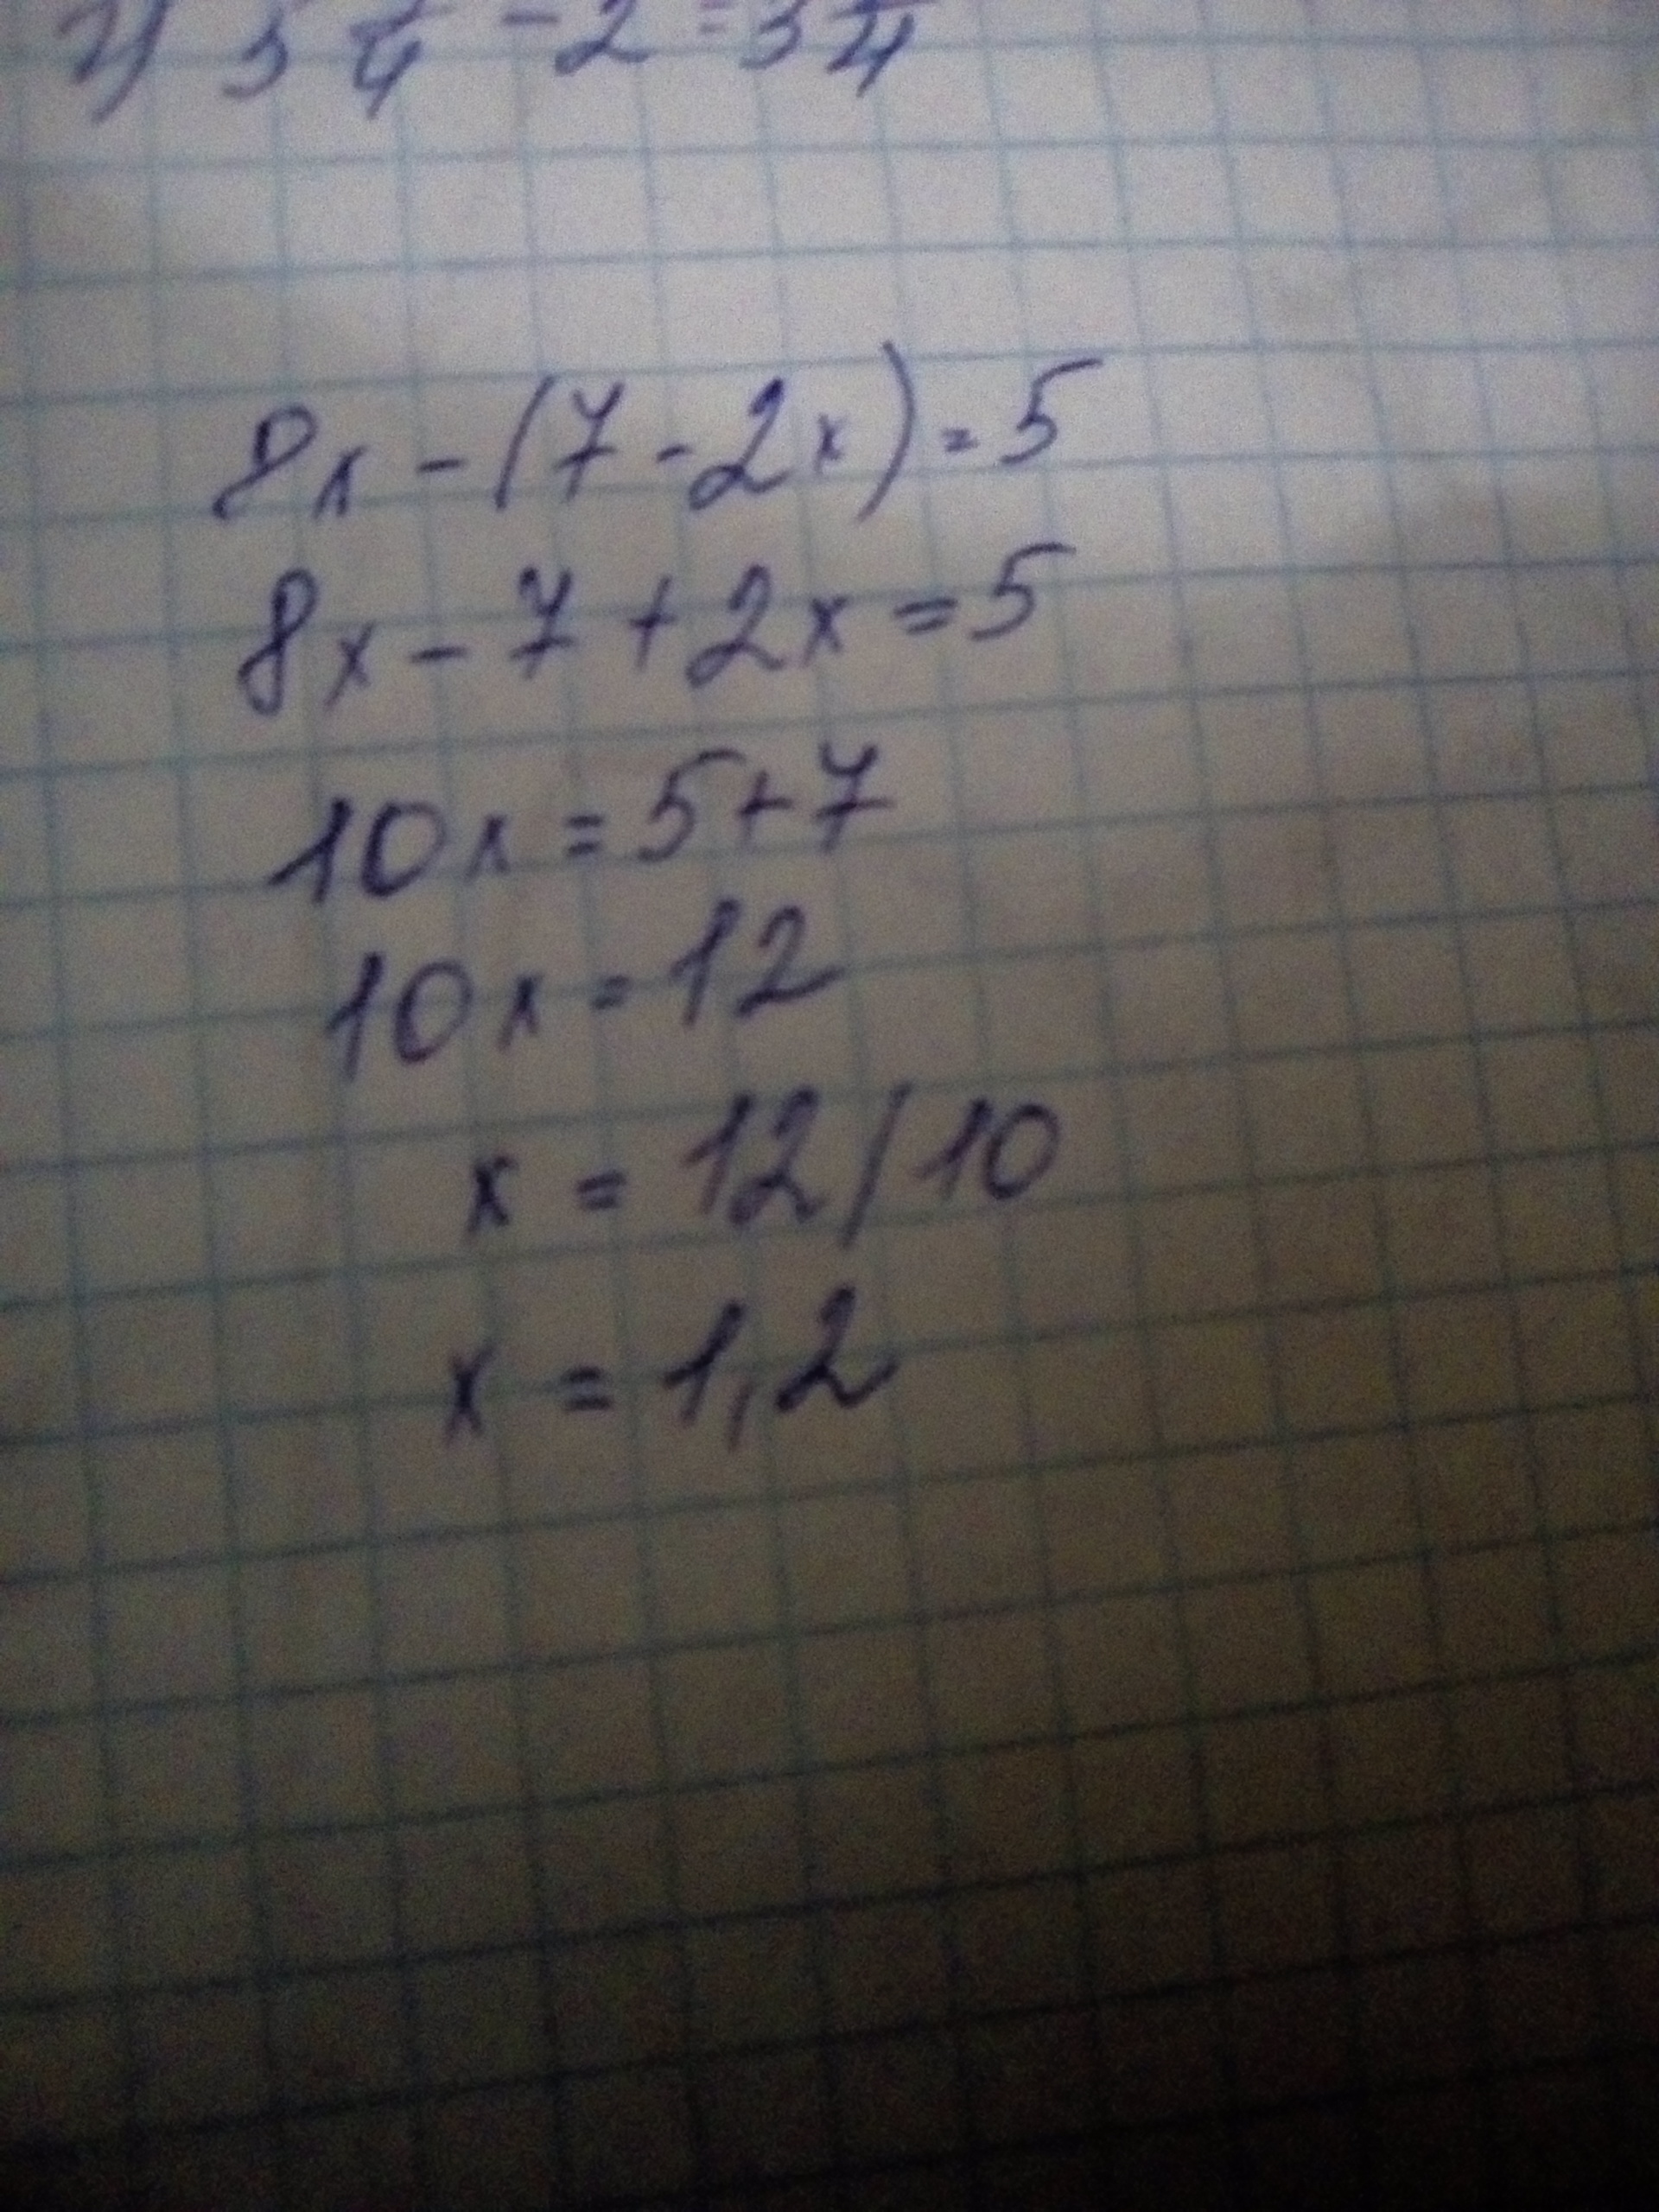 2) 5 1/4 - 2 = 3 1/4
8x - (7 - 2x) = 5
8x - 7 + 2x = 5
10x = 5 + 7
10x = 12
x = 12/10
x = 1,2